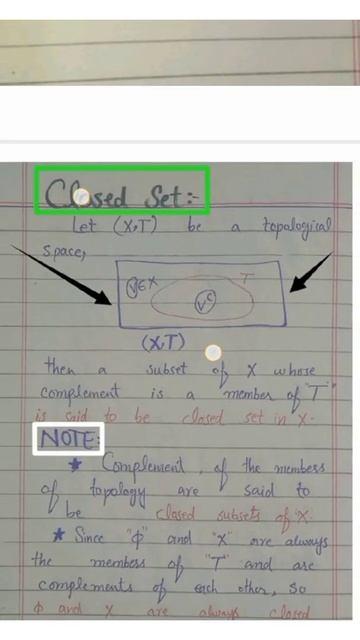 Closed Set:-
Let (X,T) be a topalogical
space,
V∈X T
Vᶜ
(X,T)
then a subset of X whose
complement is a member of "T"
is said to be closed set in X.
NOTE:
★ Complement, of the members
of topology are said to
be closed subsets of "X.
★ Since "ϕ" and "X" are always
the members of "T" and are
complements of each other, so
ϕ and X are always closed